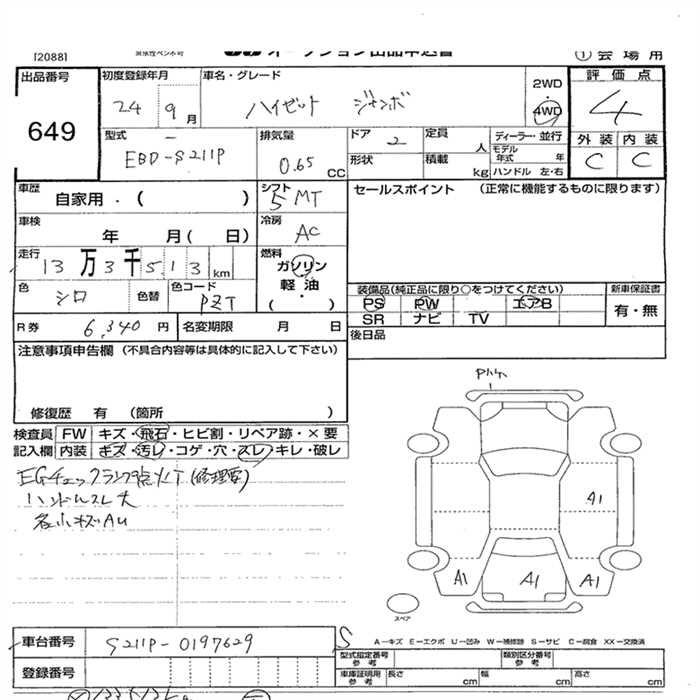 [2088] オークション出品申込書 ①会場用
出品番号 649
初度登録年月 24 9月
車名・グレード ハイゼット ジャンボ
2WD・4WD
評価点 4
外装 C 内装 C
型式 EBD-S211P
排気量 0.65 CC
ドア 2
定員 人
ディーラー・並行
形状
積載 kg
モデル年式 年
ハンドル 左・右
車歴 自家用・( )
シフト 5 MT
セールスポイント (正常に機能するものに限ります)
車検 年 月( 日)
冷房 AC
走行 13万3千513km
燃料 ガソリン 軽油・( )
色 シロ 色替
色コード PZT
装備品(純正品に限り○をつけてください)
PS PW エアB
SR ナビ TV
新車保証書 有・無
R券 6,340円
名変期限 月 日
後日品
注意事項申告欄 (不具合内容等は具体的に記入して下さい)
修復歴 有 (箇所 )
検査員記入欄 FW キズ・飛石・ヒビ割・リペア跡・×要
内装 キズ・汚レ・コゲ・穴・スレ・キレ・破レ
EGチェックランプ点灯(修理要)
ハンドルスレ大
各小キズAU
A1
A1 A1 A1
スペア
車台番号 S211P-0197629
S
A-キズ E-エクボ U-凹み W-補修跡 S-サビ C-腐食 XX-交換済
型式指定番号 参考
類別区分番号 参考
登録番号
車庫証明用 参考 長さ cm 幅 cm 高さ cm